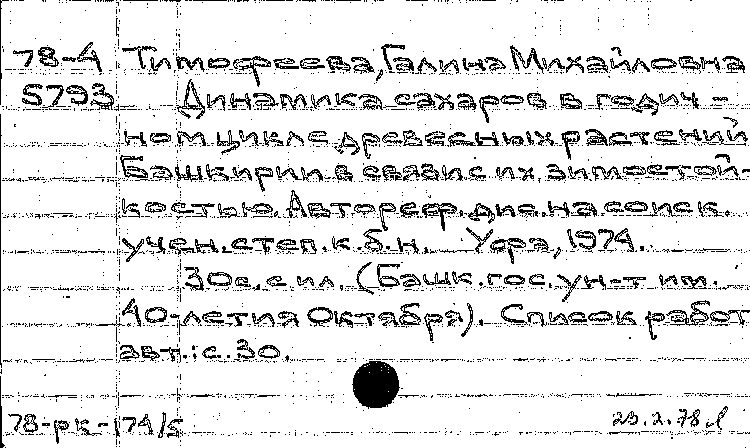 78-4 Тимофеева, Галина Михайловна
5793 Динамика сахаров в годич-
ном цикле древесных растений
Башкирии в связи с их зимостой-
костью. Автореф. дис. на соиск.
учен. степ. к. б. н. Уфа, 1974.
30 с. с ил. (Башк. гос. ун-т им.
40-летия Октября). Список работ
авт.: с. 30.
78-рк-174/5 23.2.78